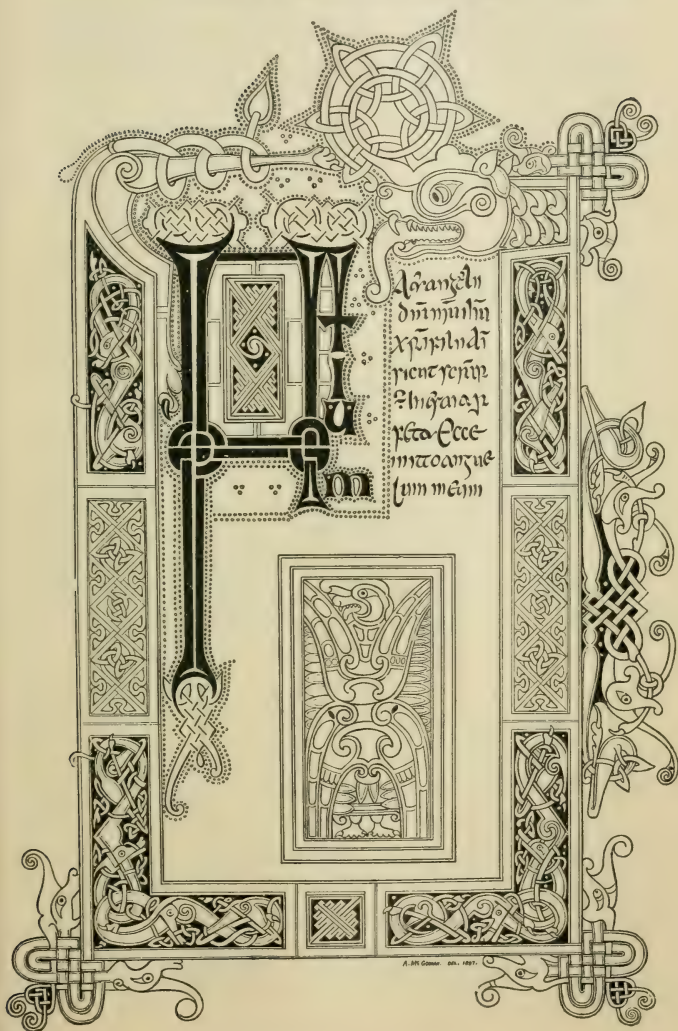 INitium
Aevangelii
dn̄i nr̄i ihū
xp̄i filii dī
sicut scrip̄
In esaia p
feta Ecce
mitto angue
lum meum
A. McGoogan. DEL. 1897.